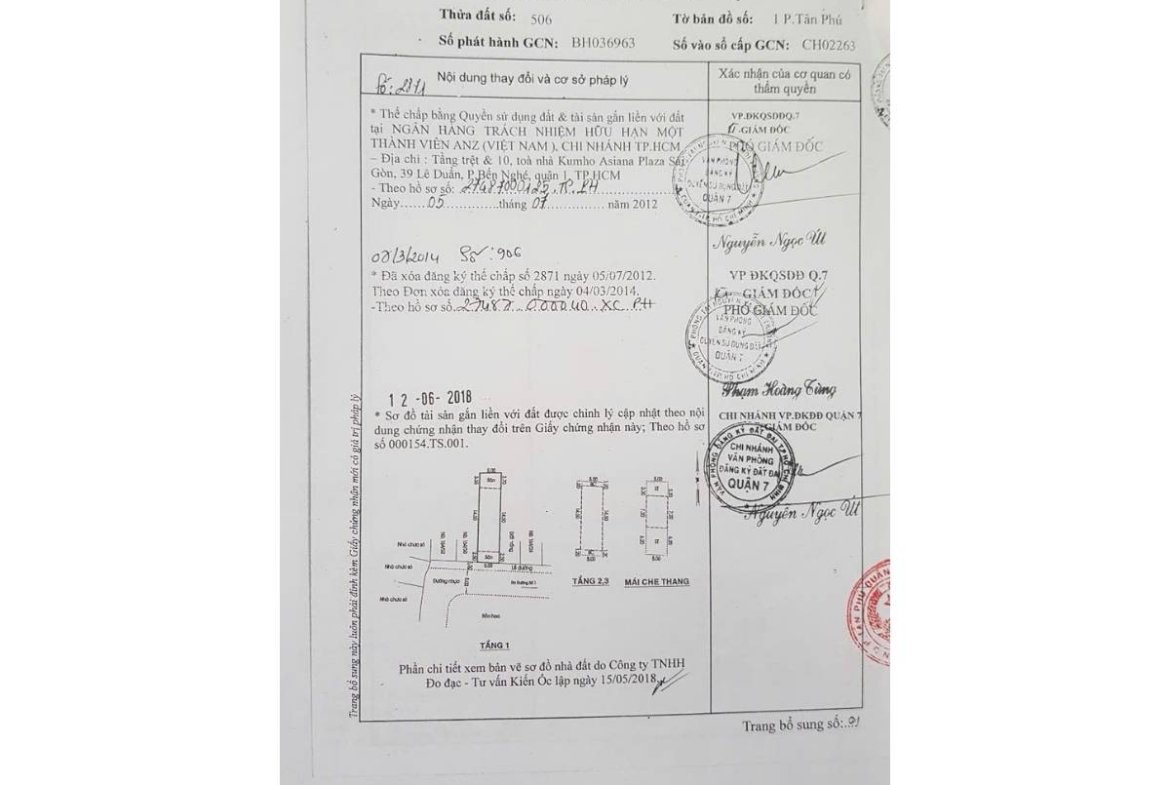 Thửa đất số: 506 Tờ bản đồ số: 1 P.Tân Phú
Số phát hành GCN: BH036963 Số vào sổ cấp GCN: CH02263
Số: 2871 Nội dung thay đổi và cơ sở pháp lý
Xác nhận của cơ quan có
thẩm quyền
* Thế chấp bằng Quyền sử dụng đất & tài sản gắn liền với đất
tại NGÂN HÀNG TRÁCH NHIỆM HỮU HẠN MỘT
THÀNH VIÊN ANZ (VIỆT NAM ), CHI NHÁNH TP.HCM
– Địa chỉ : Tầng trệt & 10, toà nhà Kumho Asiana Plaza Sài
Gòn, 39 Lê Duẩn, P.Bến Nghé, quận 1, TP.HCM
- Theo hồ sơ số: 27487000125.TP.PH
Ngày......05..............tháng 07.............. năm 2012
VP.ĐKQSDĐQ.7
GIÁM ĐỐC
PHÓ GIÁM ĐỐC
VĂN PHÒNG
ĐĂNG KÝ
QUYỀN SỬ DỤNG ĐẤT
QUẬN 7
Nguyễn Ngọc Út
/3/2014 Số: 906
* Đã xóa đăng ký thế chấp số 2871 ngày 05/07/2012.
Theo Đơn xóa đăng ký thế chấp ngày 04/03/2014.
-Theo hồ sơ số. 27487.000040.XC.PH
VP ĐKQSDĐ Q.7
GIÁM ĐỐC
PHÓ GIÁM ĐỐC
VĂN PHÒNG
ĐĂNG KÝ
QUYỀN SỬ DỤNG ĐẤT
QUẬN 7
Phạm Hoàng Tùng
12 -06- 2018
* Sơ đồ tài sản gắn liền với đất được chỉnh lý cập nhật theo nội
dung chứng nhận thay đổi trên Giấy chứng nhận này; Theo hồ sơ
số 000154.TS.001.
CHI NHÁNH VP.ĐKĐĐ QUẬN 7
GIÁM ĐỐC
VĂN PHÒNG ĐĂNG KÝ ĐẤT ĐAI TP.HỒ CHÍ MINH
CHI NHÁNH
VĂN PHÒNG
ĐĂNG KÝ ĐẤT ĐAI
QUẬN 7
Nguyễn Ngọc Út
5.00
Sân
14.00
14.00
Sân
5.00
Nhà chưa số
Nhà chưa số
Nhà chưa số
Đất trống
Lề đường
Đường nhựa
TẦNG 1
14.00
14.00
5.00
TẦNG 2,3
5.00
MÁI CHE THANG
Phần chi tiết xem bản vẽ sơ đồ nhà đất do Công ty TNHH
Đo đạc - Tư vấn Kiến Ốc lập ngày 15/05/2018.
Trang bổ sung này luôn phải đính kèm Giấy chứng nhận mới có giá trị pháp lý
Trang bổ sung số:.01